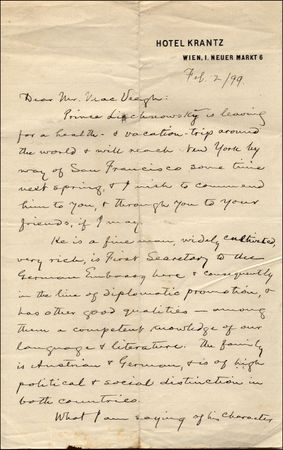 HOTEL KRANTZ
WIEN, I. NEUER MARKT 6
Feb. 2/99.
Dear Mr. MacVeagh:
Prince Lichnowsky is leaving
for a health- & vacation-trip around
the world & will reach New York by
way of San Francisco some time
next spring, & I wish to commend
him to you, & through you to your
friends, if I may.
He is a fine man, widely cultivated,
very rich, is First Secretary to the
German Embassy here & consequently
in the line of diplomatic promotion, &
has other good qualities — among
them a competent knowledge of our
language & literature. The family
is Austrian & German, & is of high
political & social distinction in
both countries.
What I am saying of his character